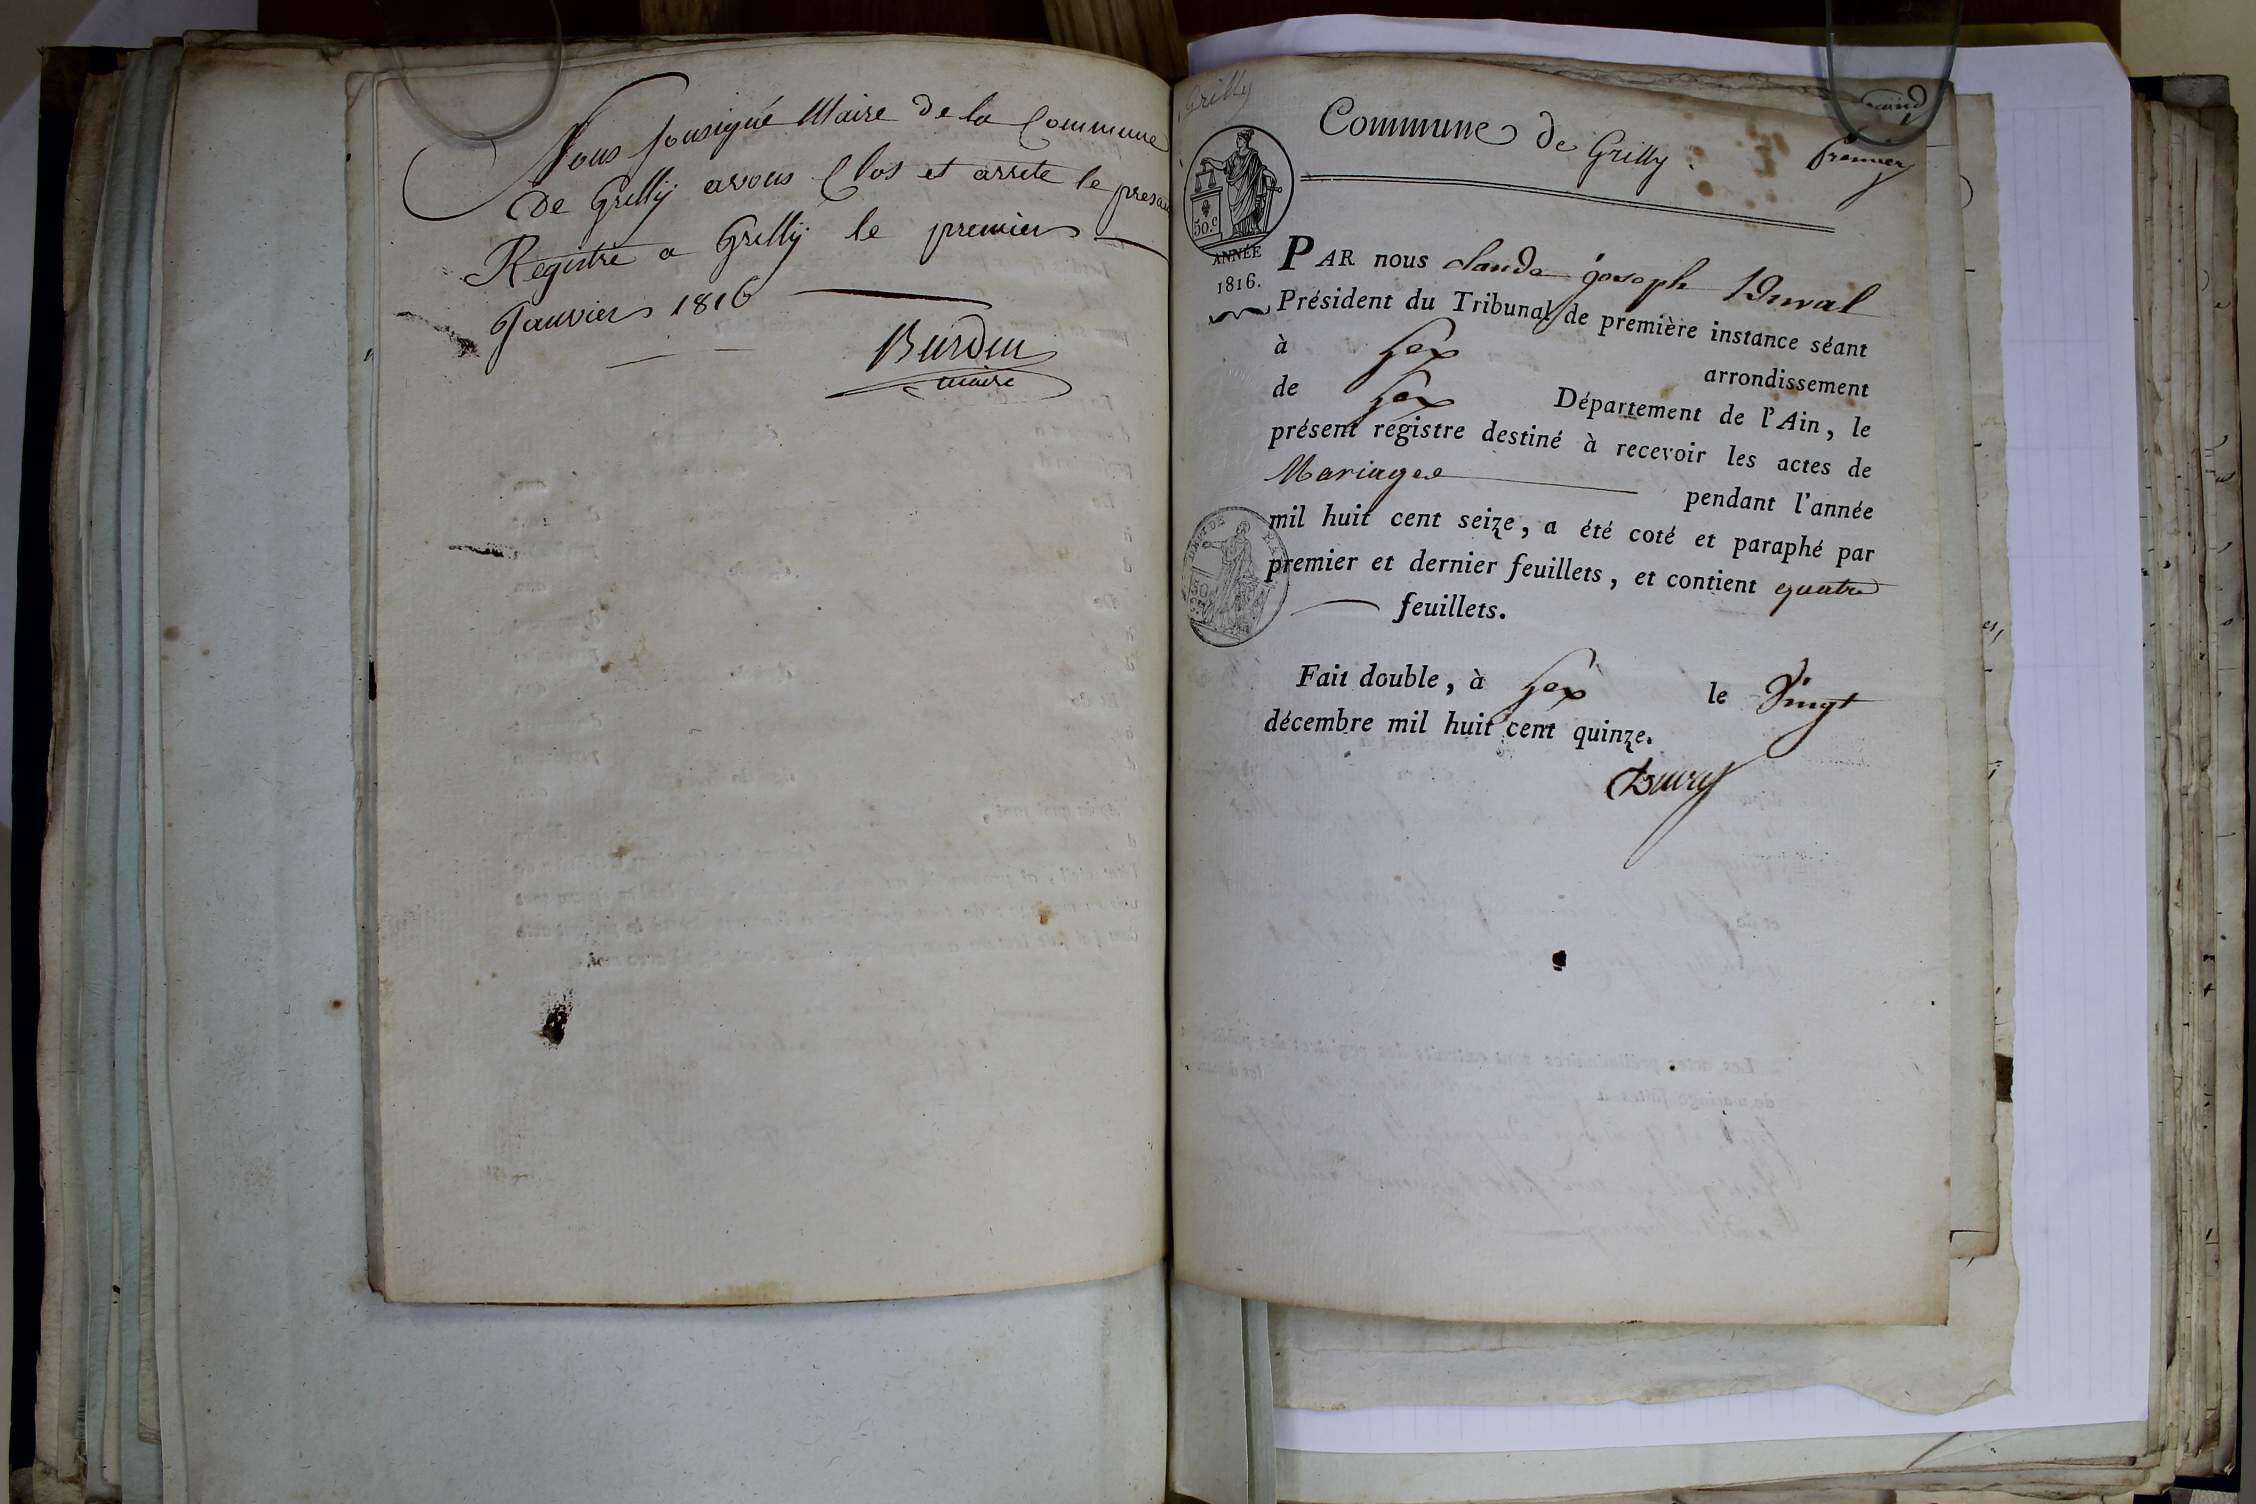 Nous sousigné Maire de la Commune
de Grilly avons Clos et arrete le present
Registre a Grilly le premier
Janvier 1816
Burdin
maire
Grilly
Commune de Grilly.
Premier
50.c
ANNÉE
1816.
PAR nous Claude joseph Duval
Président du Tribunal de première instance séant
à Gex arrondissement
de Gex Département de l'Ain, le
présent registre destiné à recevoir les actes de
Mariages pendant l'année
mil huit cent seize, a été coté et paraphé par
premier et dernier feuillets, et contient quatre
feuillets.
50
Fait double, à Gex le Vingt
décembre mil huit cent quinze.
Duval